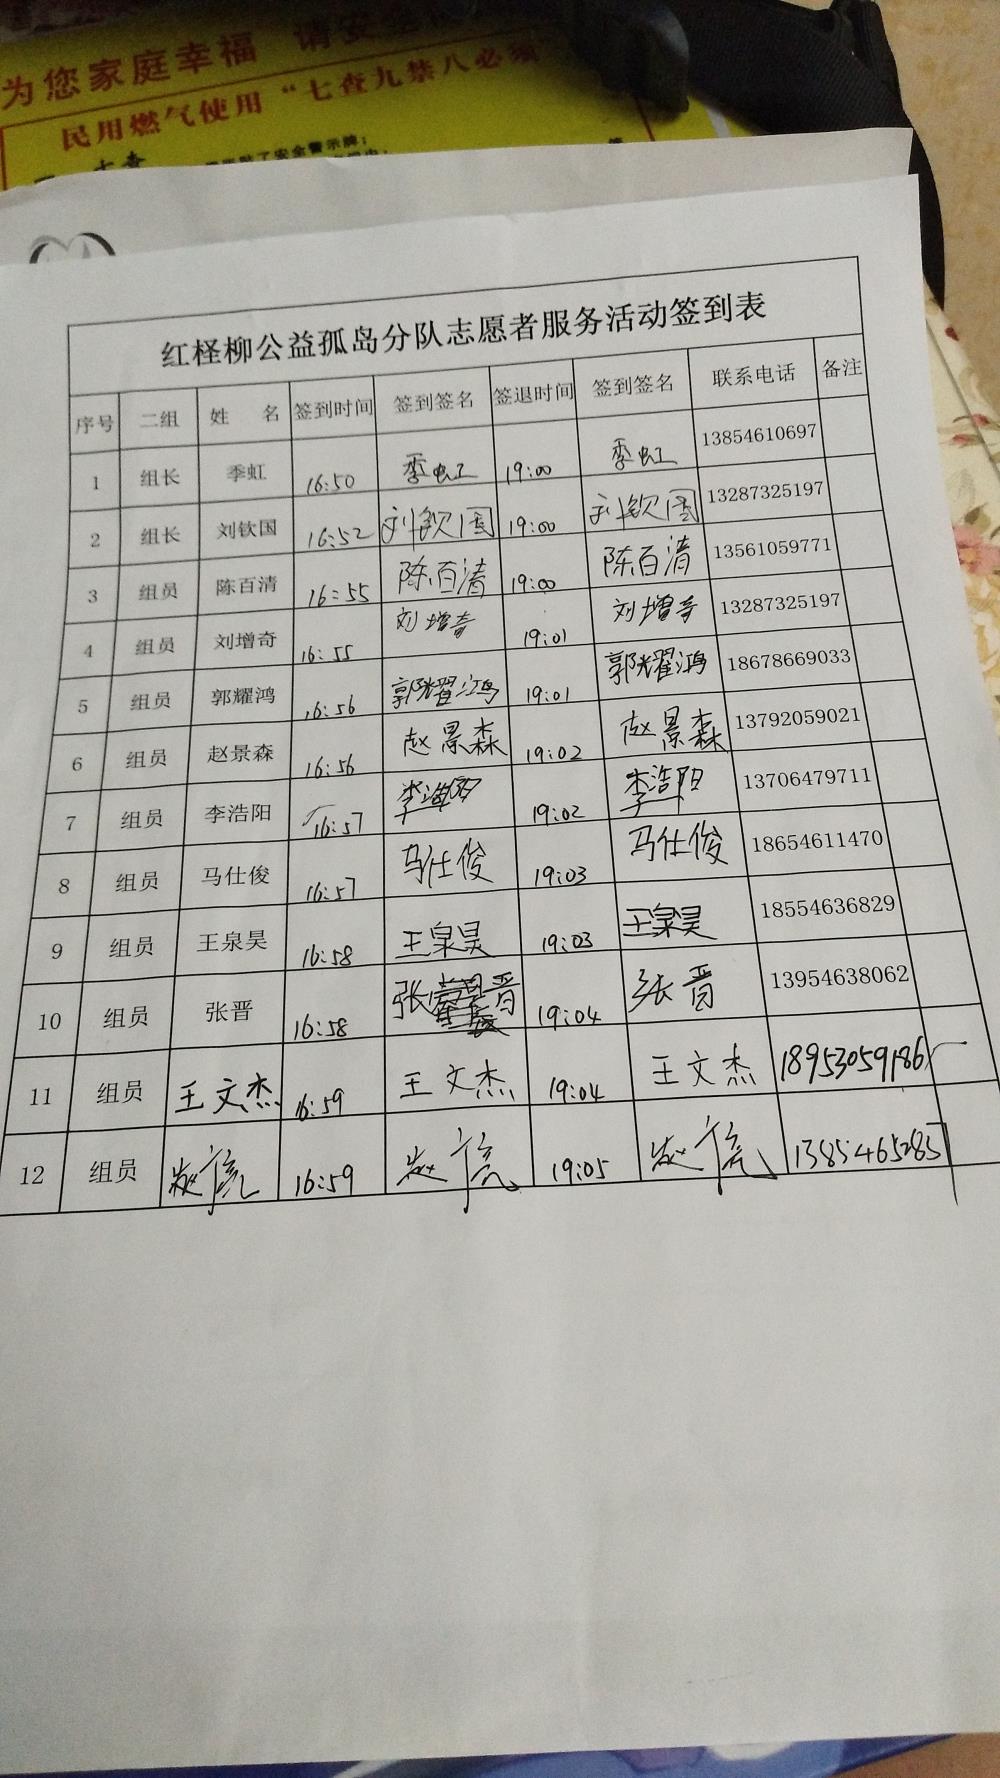 为您家庭幸福 请安全
民用燃气使用“七查九禁八必须
红柽柳公益孤岛分队志愿者服务活动签到表
序号 二组 姓 名 签到时间 签到签名 签退时间 签到签名 联系电话 备注
1 组长 季虹 16:50 季虹 19:00 季虹 13854610697
2 组长 刘钦国 16:52 刘钦国 19:00 刘钦国 13287325197
3 组员 陈百清 16:55 陈百清 19:00 陈百清 13561059771
4 组员 刘增奇 16:55 刘增奇 19:01 刘增奇 13287325197
5 组员 郭耀鸿 16:56 郭耀鸿 19:01 郭耀鸿 18678669033
6 组员 赵景森 16:56 赵景森 19:02 赵景森 13792059021
7 组员 李浩阳 16:57 李浩阳 19:02 李浩阳 13706479711
8 组员 马仕俊 16:57 马仕俊 19:03 马仕俊 18654611470
9 组员 王泉昊 16:58 王泉昊 19:03 王泉昊 18554636829
10 组员 张晋 16:58 张 晋 19:04 张晋 13954638062
11 组员 王文杰 16:59 王文杰 19:04 王文杰 18953059186
12 组员 16:59 19:05 13854652857